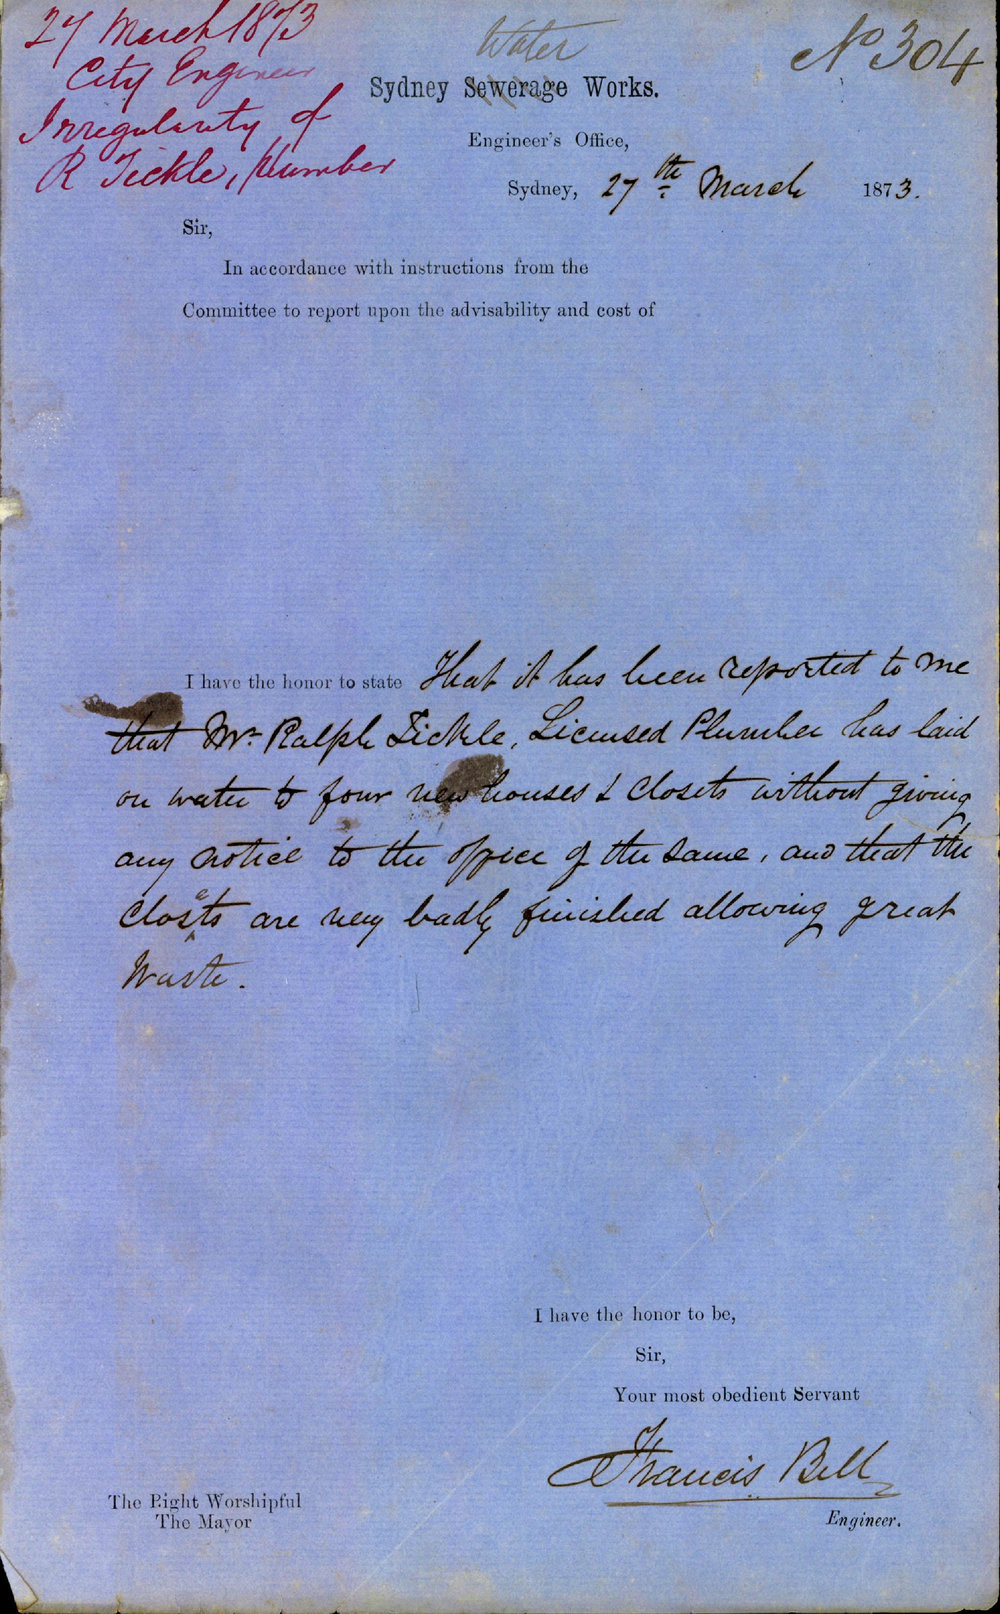 27 March 1873
City Engineer
Irregularity of
R Tickle, Plumber
No 304
Water
Sydney Sewerage Works.
Engineer's Office,
Sydney, 27th March 1873.
Sir,
In accordance with instructions from the
Committee to report upon the advisability and cost of
I have the honor to state That it has been reported to me
that Mr Ralph Tickle, Licensed Plumber has laid
on water to four new houses & closets without giving
any notice to the office of the same, and that the
closets are very badly finished allowing great
Waste.
I have the honor to be,
Sir,
Your most obedient Servant
Francis Bell
Engineer.
The Right Worshipful
The Mayor